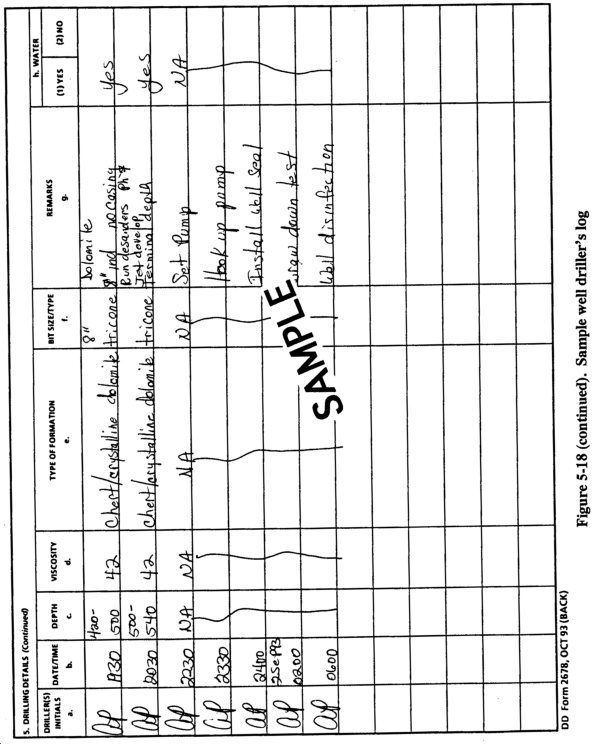 5. DRILLING DETAILS (Continued)
DRILLER(S) INITIALS a.
DATE/TIME b.
DEPTH c.
VISCOSITY d.
TYPE OF FORMATION e.
BIT SIZE/TYPE f.
REMARKS g.
h. WATER
(1) YES
(2) NO
420-
8"
Dolomite
1930 500 42 Chert/crystalline dolomite tricone 8" ind no casing yes
500-
Run desanders
Jet develop
2030 540 42 Chert/crystalline dolomite tricone Terminal depth yes
2230 NA NA NA NA Set Pump NA
2330 Hook up pump
2400 Install Well Seal
2Sepp3
0200 draw down test
0600 Well disinfection
SAMPLE
DD Form 2678, OCT 93 (BACK)
Figure 5-18 (continued). Sample well driller's log